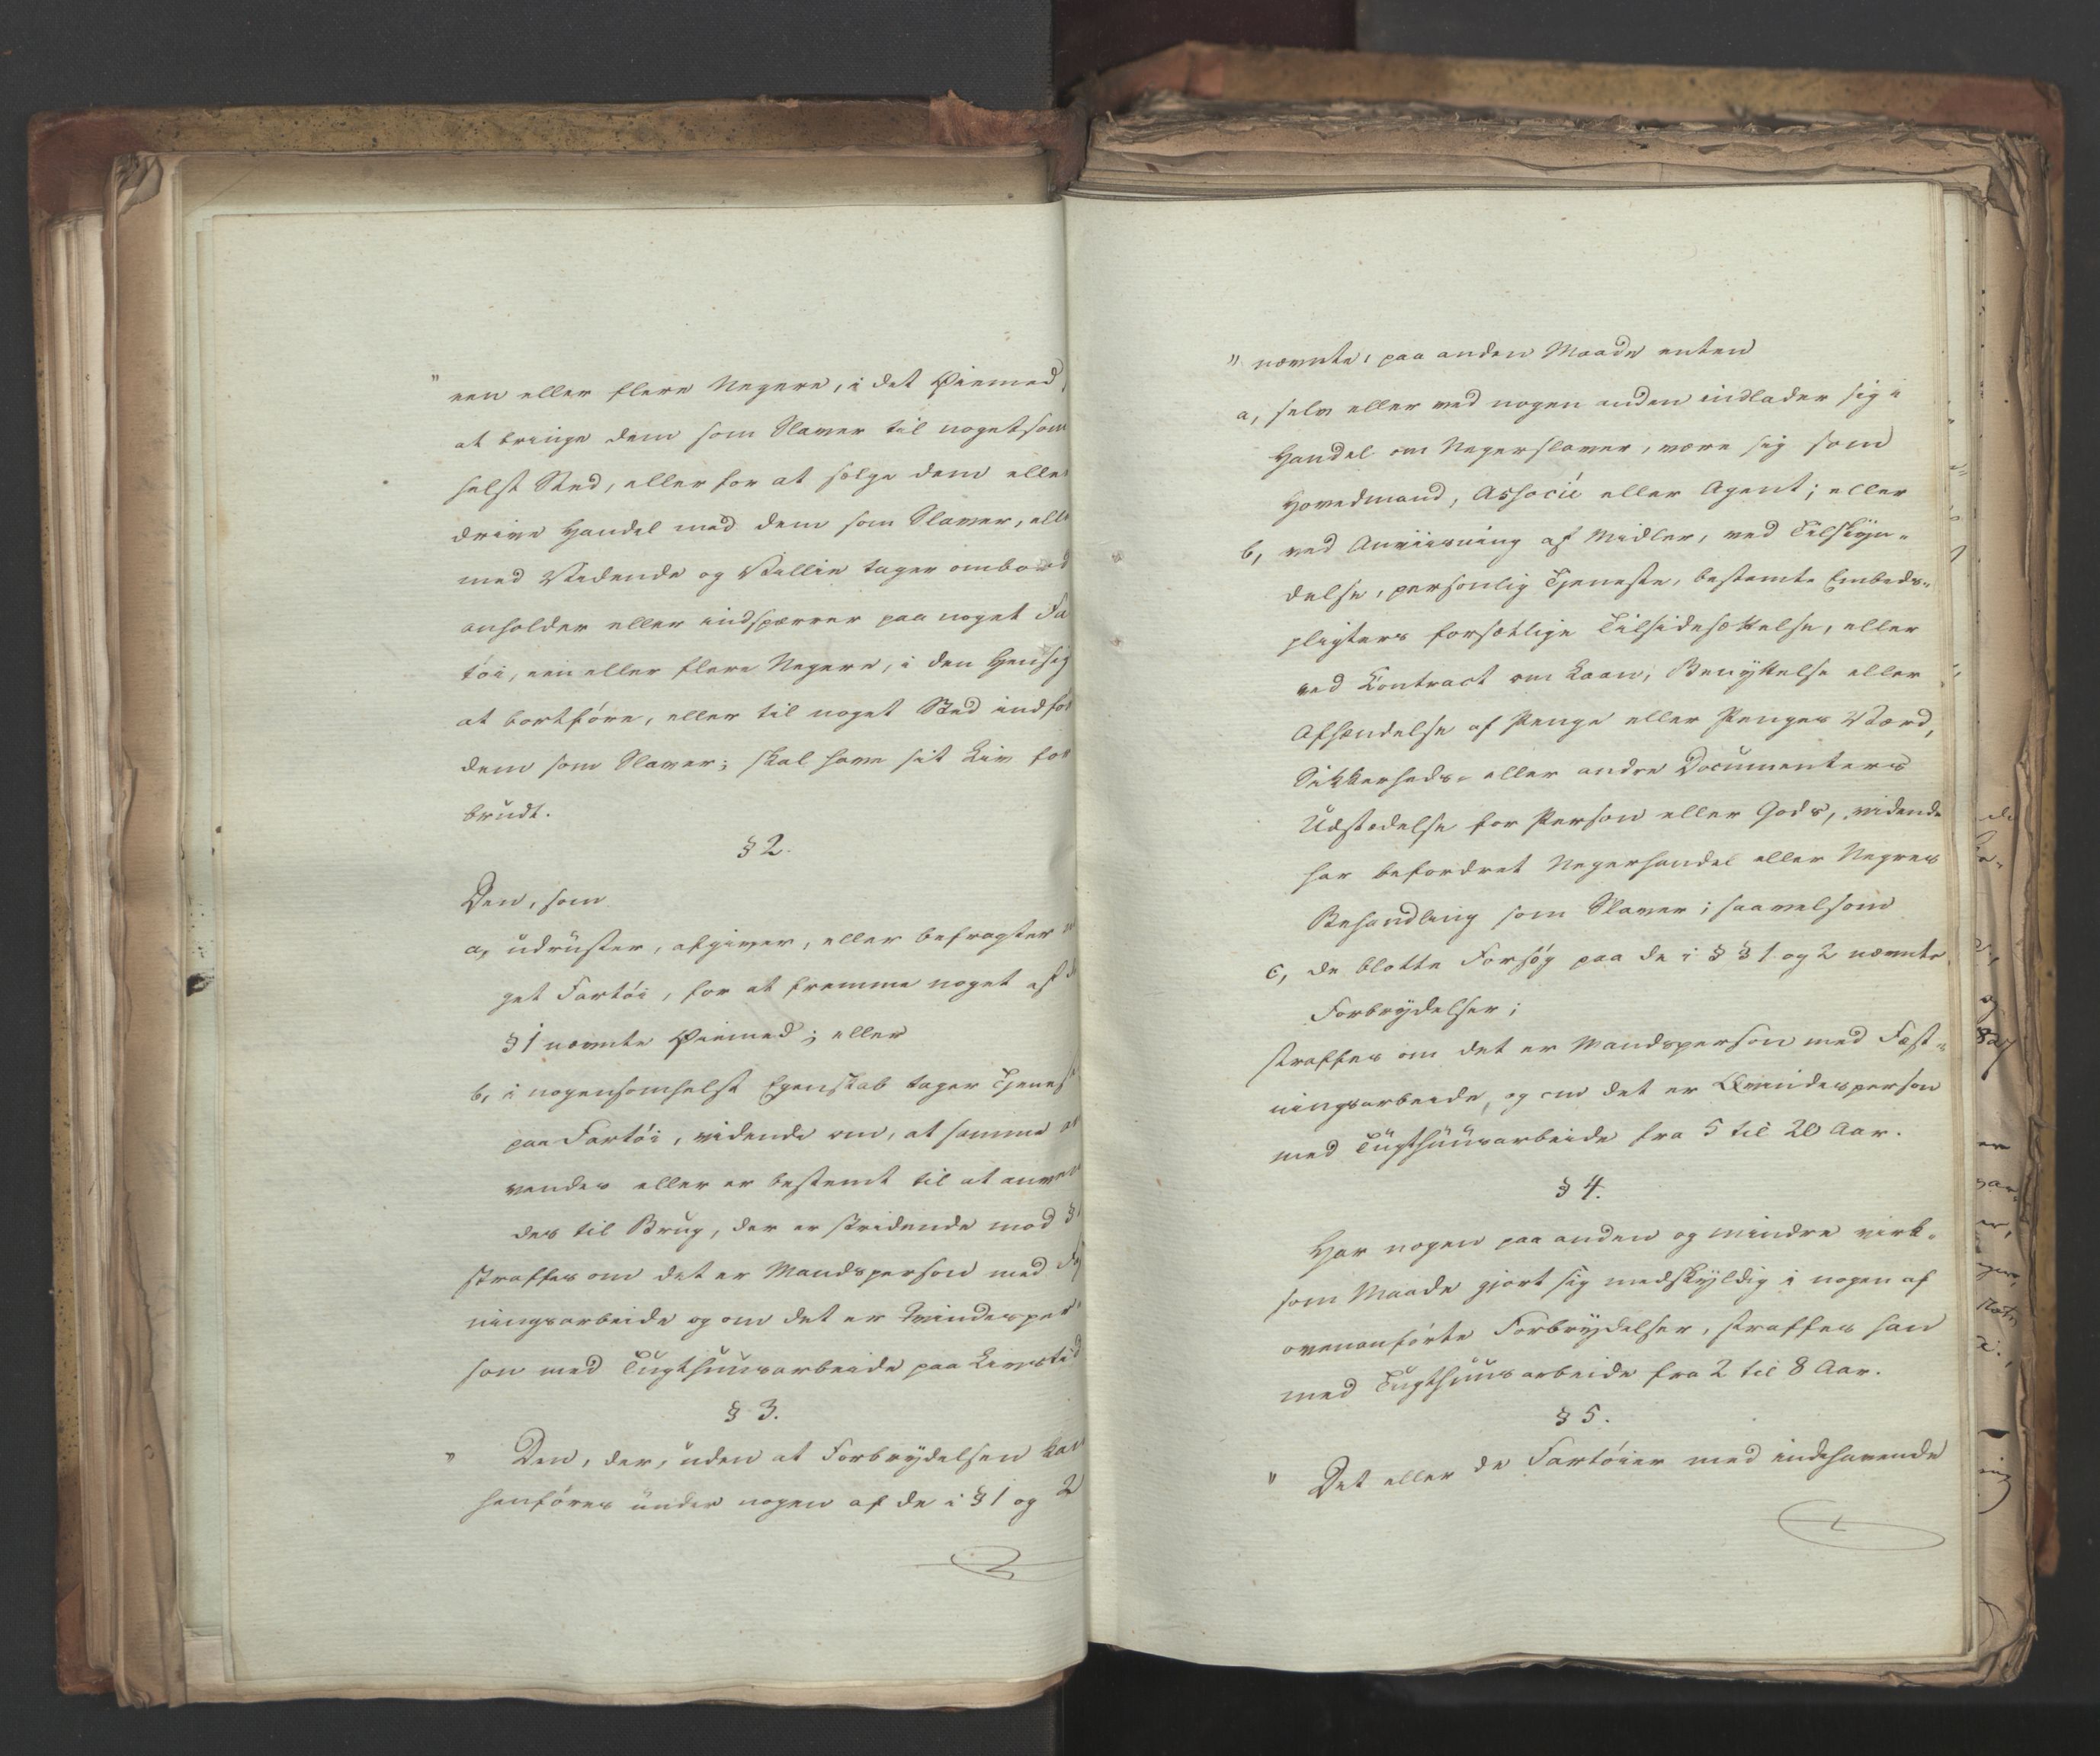 " een eller flere Negere, i det Øiemed,
at bringe dem som Slaver til nogetsom
helst Sted, eller for at sælge dem eller
drive Handel med dem som Slaver, elle
med Vidende og Villie tager ombord
anholder eller indspærrer paa noget Fa
töi, een eller flere Negere, i den Hensig
at bortföre, eller til noget Sted indför
dem som Slaver; skal have sit Liv for
brudt.
§ 2.
Den, som
a, udruster, afgiver, eller befragter n
get Fartöi, for at fremme noget af d
§ 1 nævnte Øiemed; eller
b, i nogensomhelst Egenskab tager Tjenes
paa Fartöi, vidende om, at samme an
vendes eller er bestemt til at anven
des til Brug, der er stridende mod §
straffes om det er Mandsperson med
ningsarbeide og om det er Qvindesper
son med Tugthuusarbeide paa Livstid
§ 3.
" Den, der, uden at Forbrydelsen kan
henföres under nogen af de i § 1 og 2
" nævnte, paa anden Maade enten
a, selv eller ved nogen anden indlader sig i
Handel om Negerslaver, være sig som
Hovedmand, Associé eller Agent; eller
b, ved Anviisning af Midler, ved Tilskyn-
delse, personlig Tjeneste, bestemte Embeds-
pligters forsætlige Tilsidesættelse, eller
ved Contract om Laan, Benyttelse eller
Afhændelse af Penge eller Penges Værd,
Sikkerheds- eller andre Documenters
Udstædelse for Person eller Gods, vidende
har befordret Negerhandel eller Negres
Behandling som Slaver; saavelsom
c, de blotte Forsøg paa de i § § 1 og 2 nævnte
Forbrydelser;
straffes om det er Mandsperson med Fæst-
ningsarbeide, og om det er Qvindesperson
med Tugthuusarbeide fra 5 til 20 Aar.
§ 4.
Har nogen paa anden og mindre virk-
som Maade gjort sig medskyldig i nogen af
ovenanförte Forbrydelser, straffes han
med Tugthuusarbeide fra 2 til 8 Aar.
§ 5.
" Det eller de Fartöier med indehavende